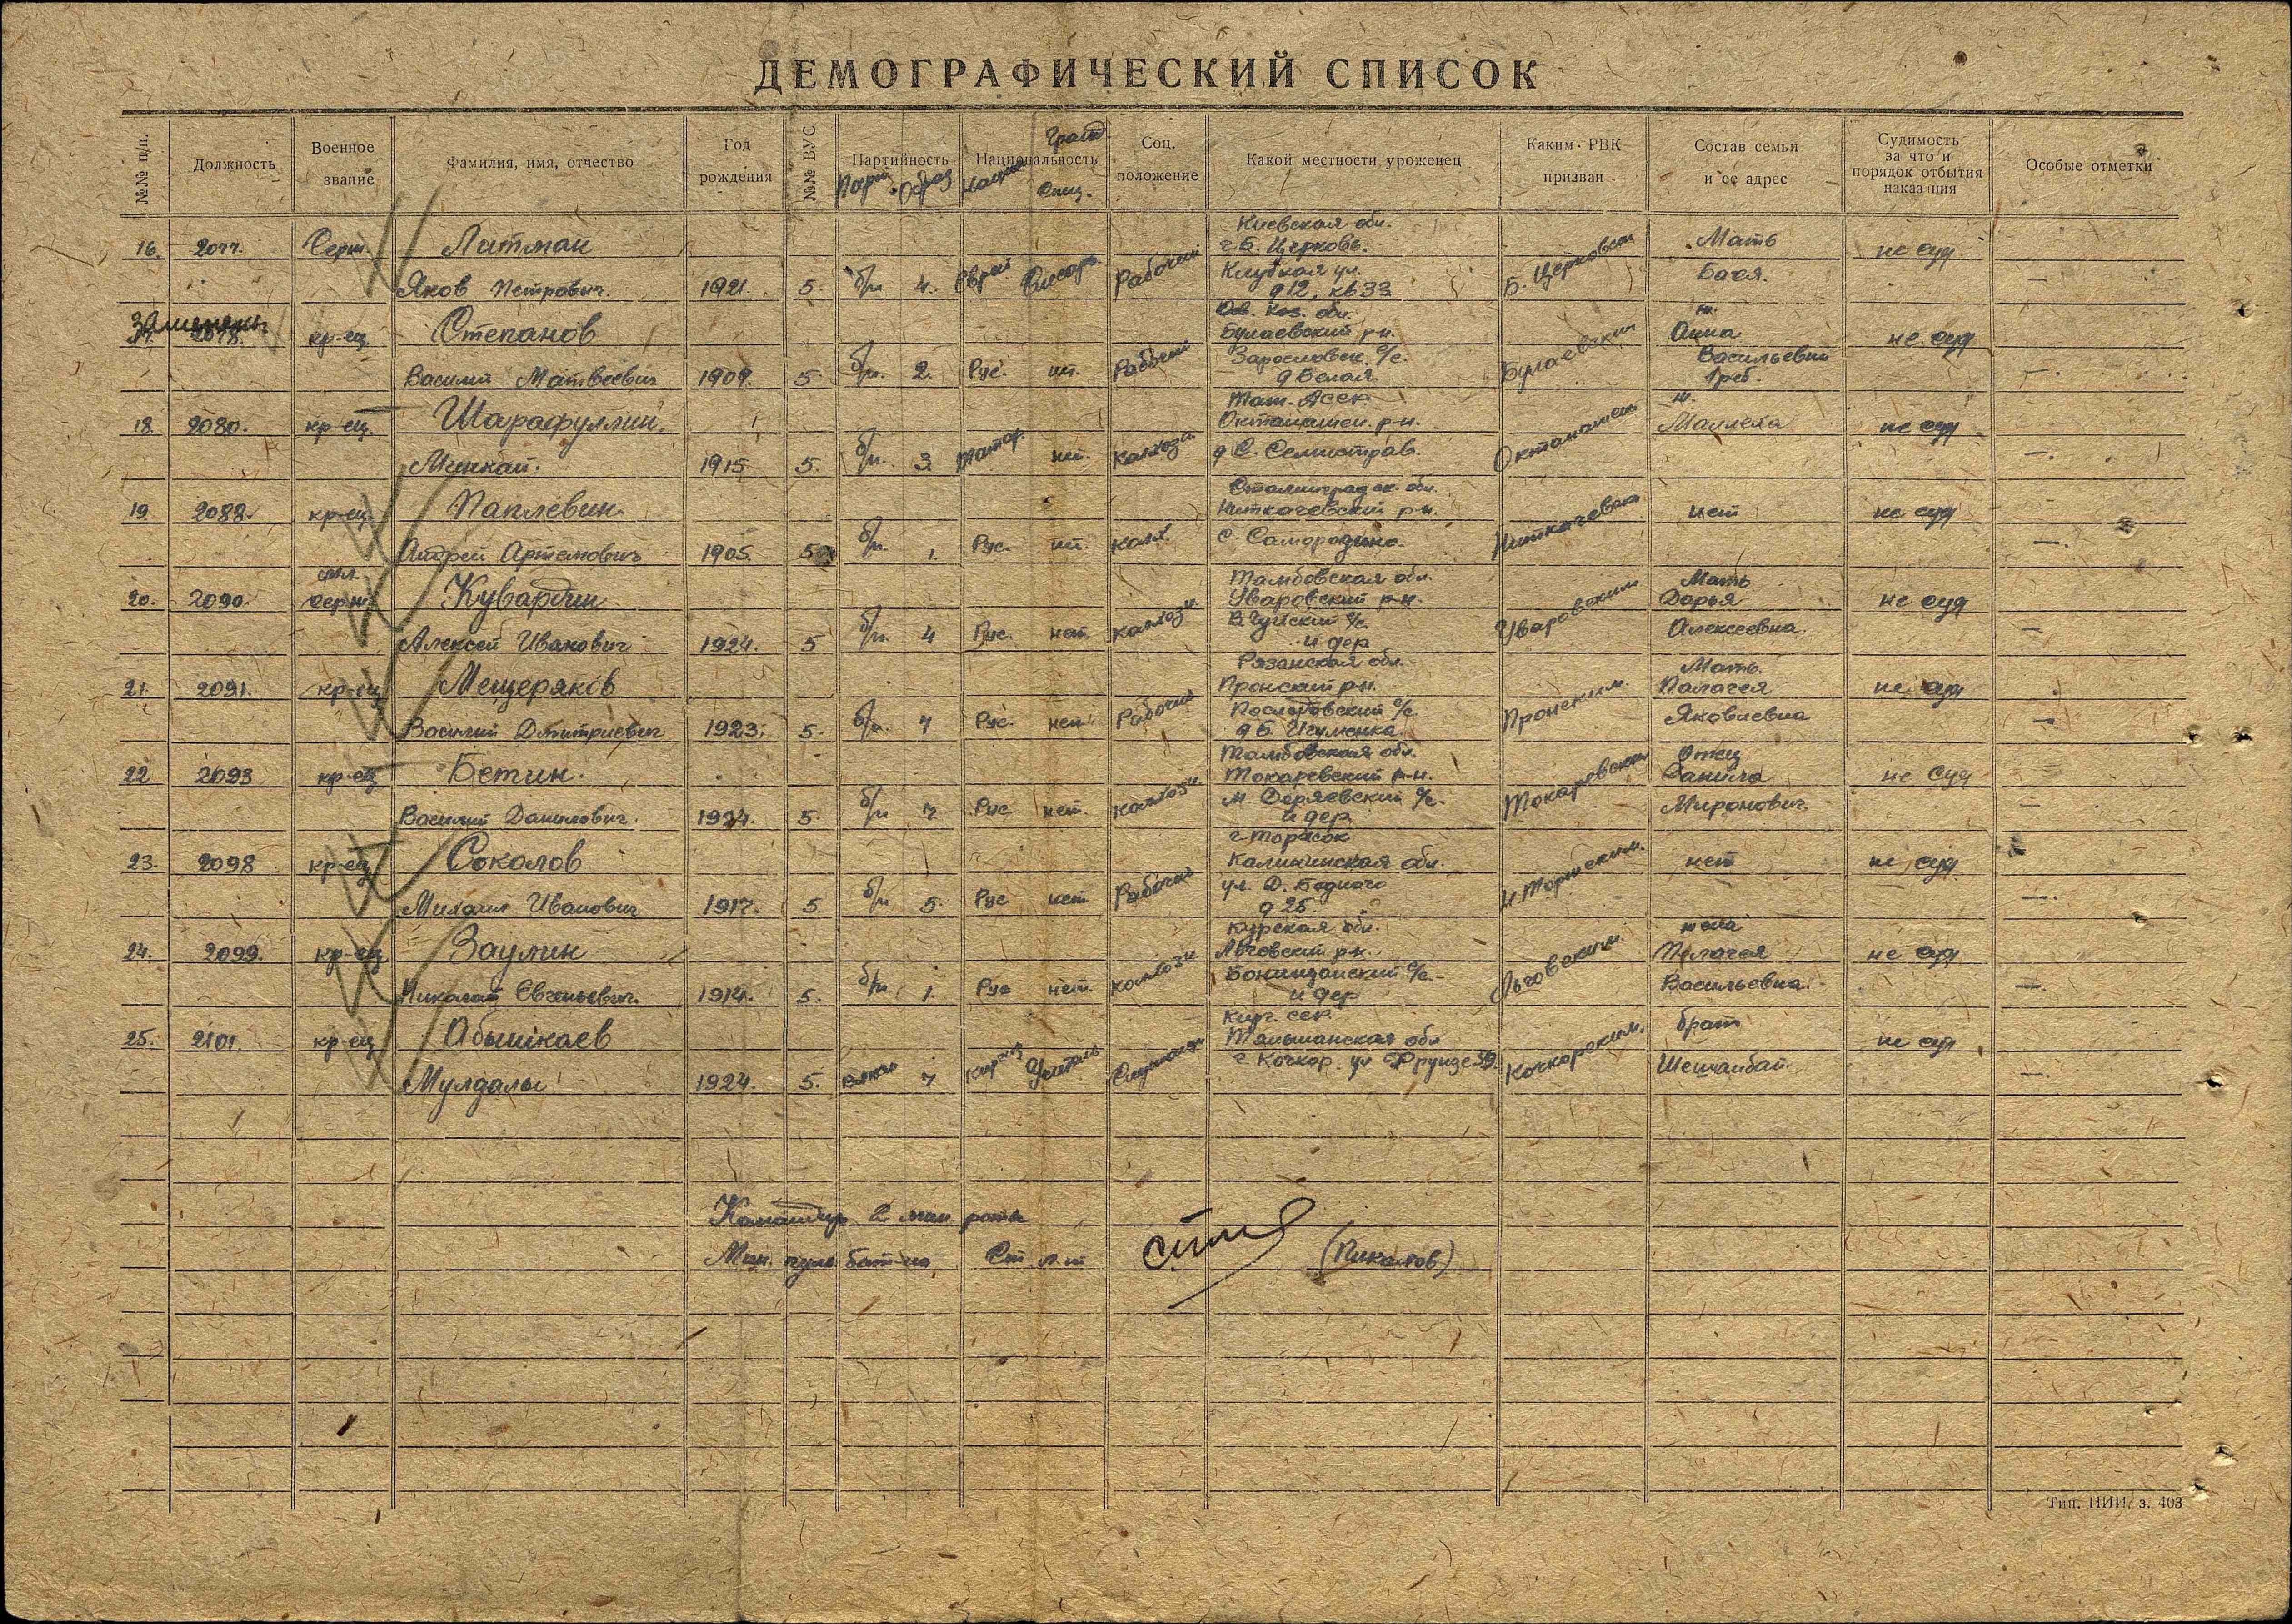 ДЕМОГРАФИЧЕСКИЙ СПИСОК
№№ п/п. Должность Военное звание Фамилия, имя, отчество Год рождения №№ ВУС Партийность Национальность Соц. положение Какой местности уроженец Каким РВК призван Состав семьи и ее адрес Судимость за что и порядок отбытия наказания Особые отметки
Образ Спец.
Киевская обл.
16. 2077. Серж. Литман г Б. Церковь. Мать не суд
Яков Петрович. 1921. 5. б/п 4. Еврей Слесарь Рабочий Клубная ул. Б. Церковск Бася. —
д 12, кв 33
Каз. обл.
17. 2078. кр-ец. Степанов Булаевский р-н. Анна не суд
Василий Матвеевич 1909. 5 б/п. 2. Рус. нет. Рабочий с/с. Булаевским Васильевна —.
д Белая 1 реб.
Тат. АССР ж.
18. 2080. кр-ец. Шарафуллин Октаншен. р-н. не суд
Минкай. 1915 5. б/п. 3. Татар. нет. Колхозн. —.
Сталинградск. обл.
19. 2088. кр-ец. Паплевин р-н. нет не суд
Андрей Артемович 1905 5 б/п. 1. Рус. нет. Колх. с. Самородино. —.
ст. Тамбовская обл. Мать
20. 2090. серж. Кувардин Уваровский р-н. Дарья не суд
Алексей Иванович 1924. 5 б/п. 4 Рус. нет. Колхозн. с/с. Уваровским Алексеевна. —
и дер
Рязанская обл. Мать.
21. 2091. кр-ец Мещеряков Пронский р-н. Палагея не суд
Василий Дмитриевич 1923. 5. б/п. 7 Рус. нет. Рабочий с/с Пронским. Яковлевна —
д Б. Игуменка
Тамбовская обл. Отец
22 2093 кр-ец Бетин. Токаревский р-н. Данила не суд
Василий Данилович. 1924. 5. б/п 7 Рус нет. Колхозн М. Деряевский с/с. Токаревским Миронович —
и дер.
г Торжок
23. 2098 кр-ец Соколов Калининская обл. нет не суд
Михаил Иванович 1917. 5 б/п 5. Рус нет Рабочий ул. Д. Бедного —.
д 25.
Курская обл. жена
24. 2099. кр-ец Заулин Льговский р-н. Пелагея не суд
Николай Евгеньевич. 1914. 5. б/п. 1. Рус нет. Колхозн с/с. Льговским. Васильевна. —.
и дер
Кирг. сср.
25. 2101. кр-ец Абышкаев Тяньшанская обл брат не суд
Мулдалы 1924. 5. 7 Киргиз Учитель Служащ г Кочкор. ул Фрунзе 59. Кочкорским. Шешлибай —.
Командир 2 мин роты
Мин. пульбат-на, Ст. л-т (Пикалов)
Тип. НИИ, з. 403